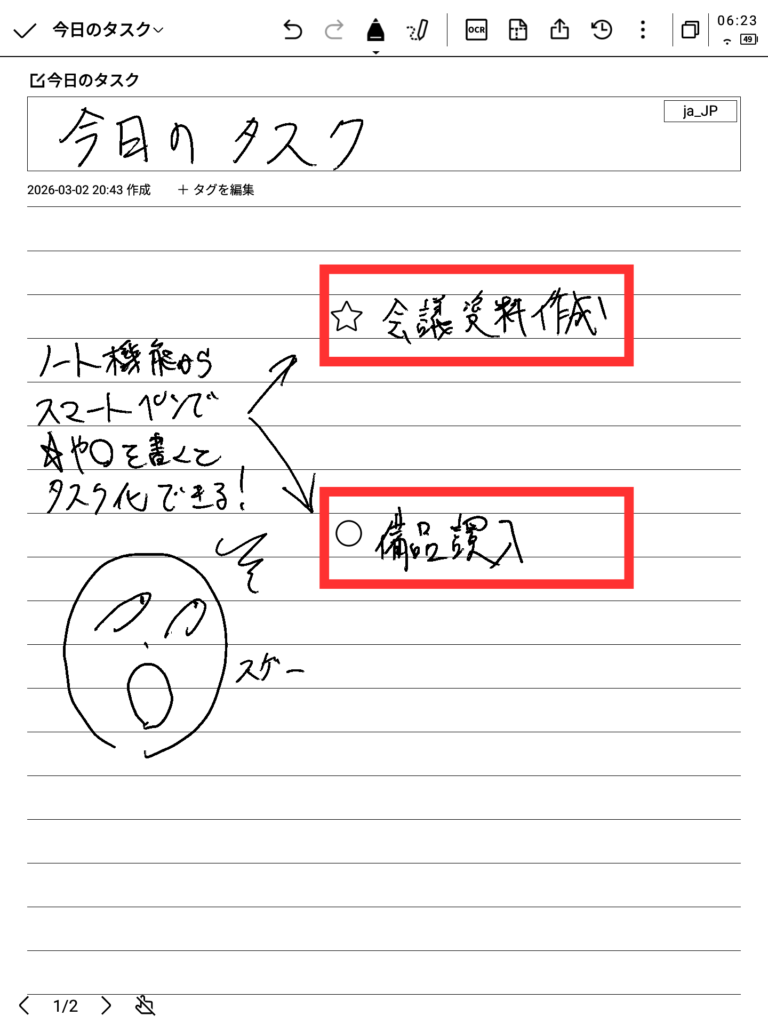 今日のタスク
OCR
06:23
49
今日のタスク
今日のタスク
ja_JP
2026-03-02 20:43 作成 + タグを編集
☆ 会議資料作成
ノート機能から
スマートペンで
☆や○を書くと
タスク化できる!
○ 備品購入
スゲー
1/2